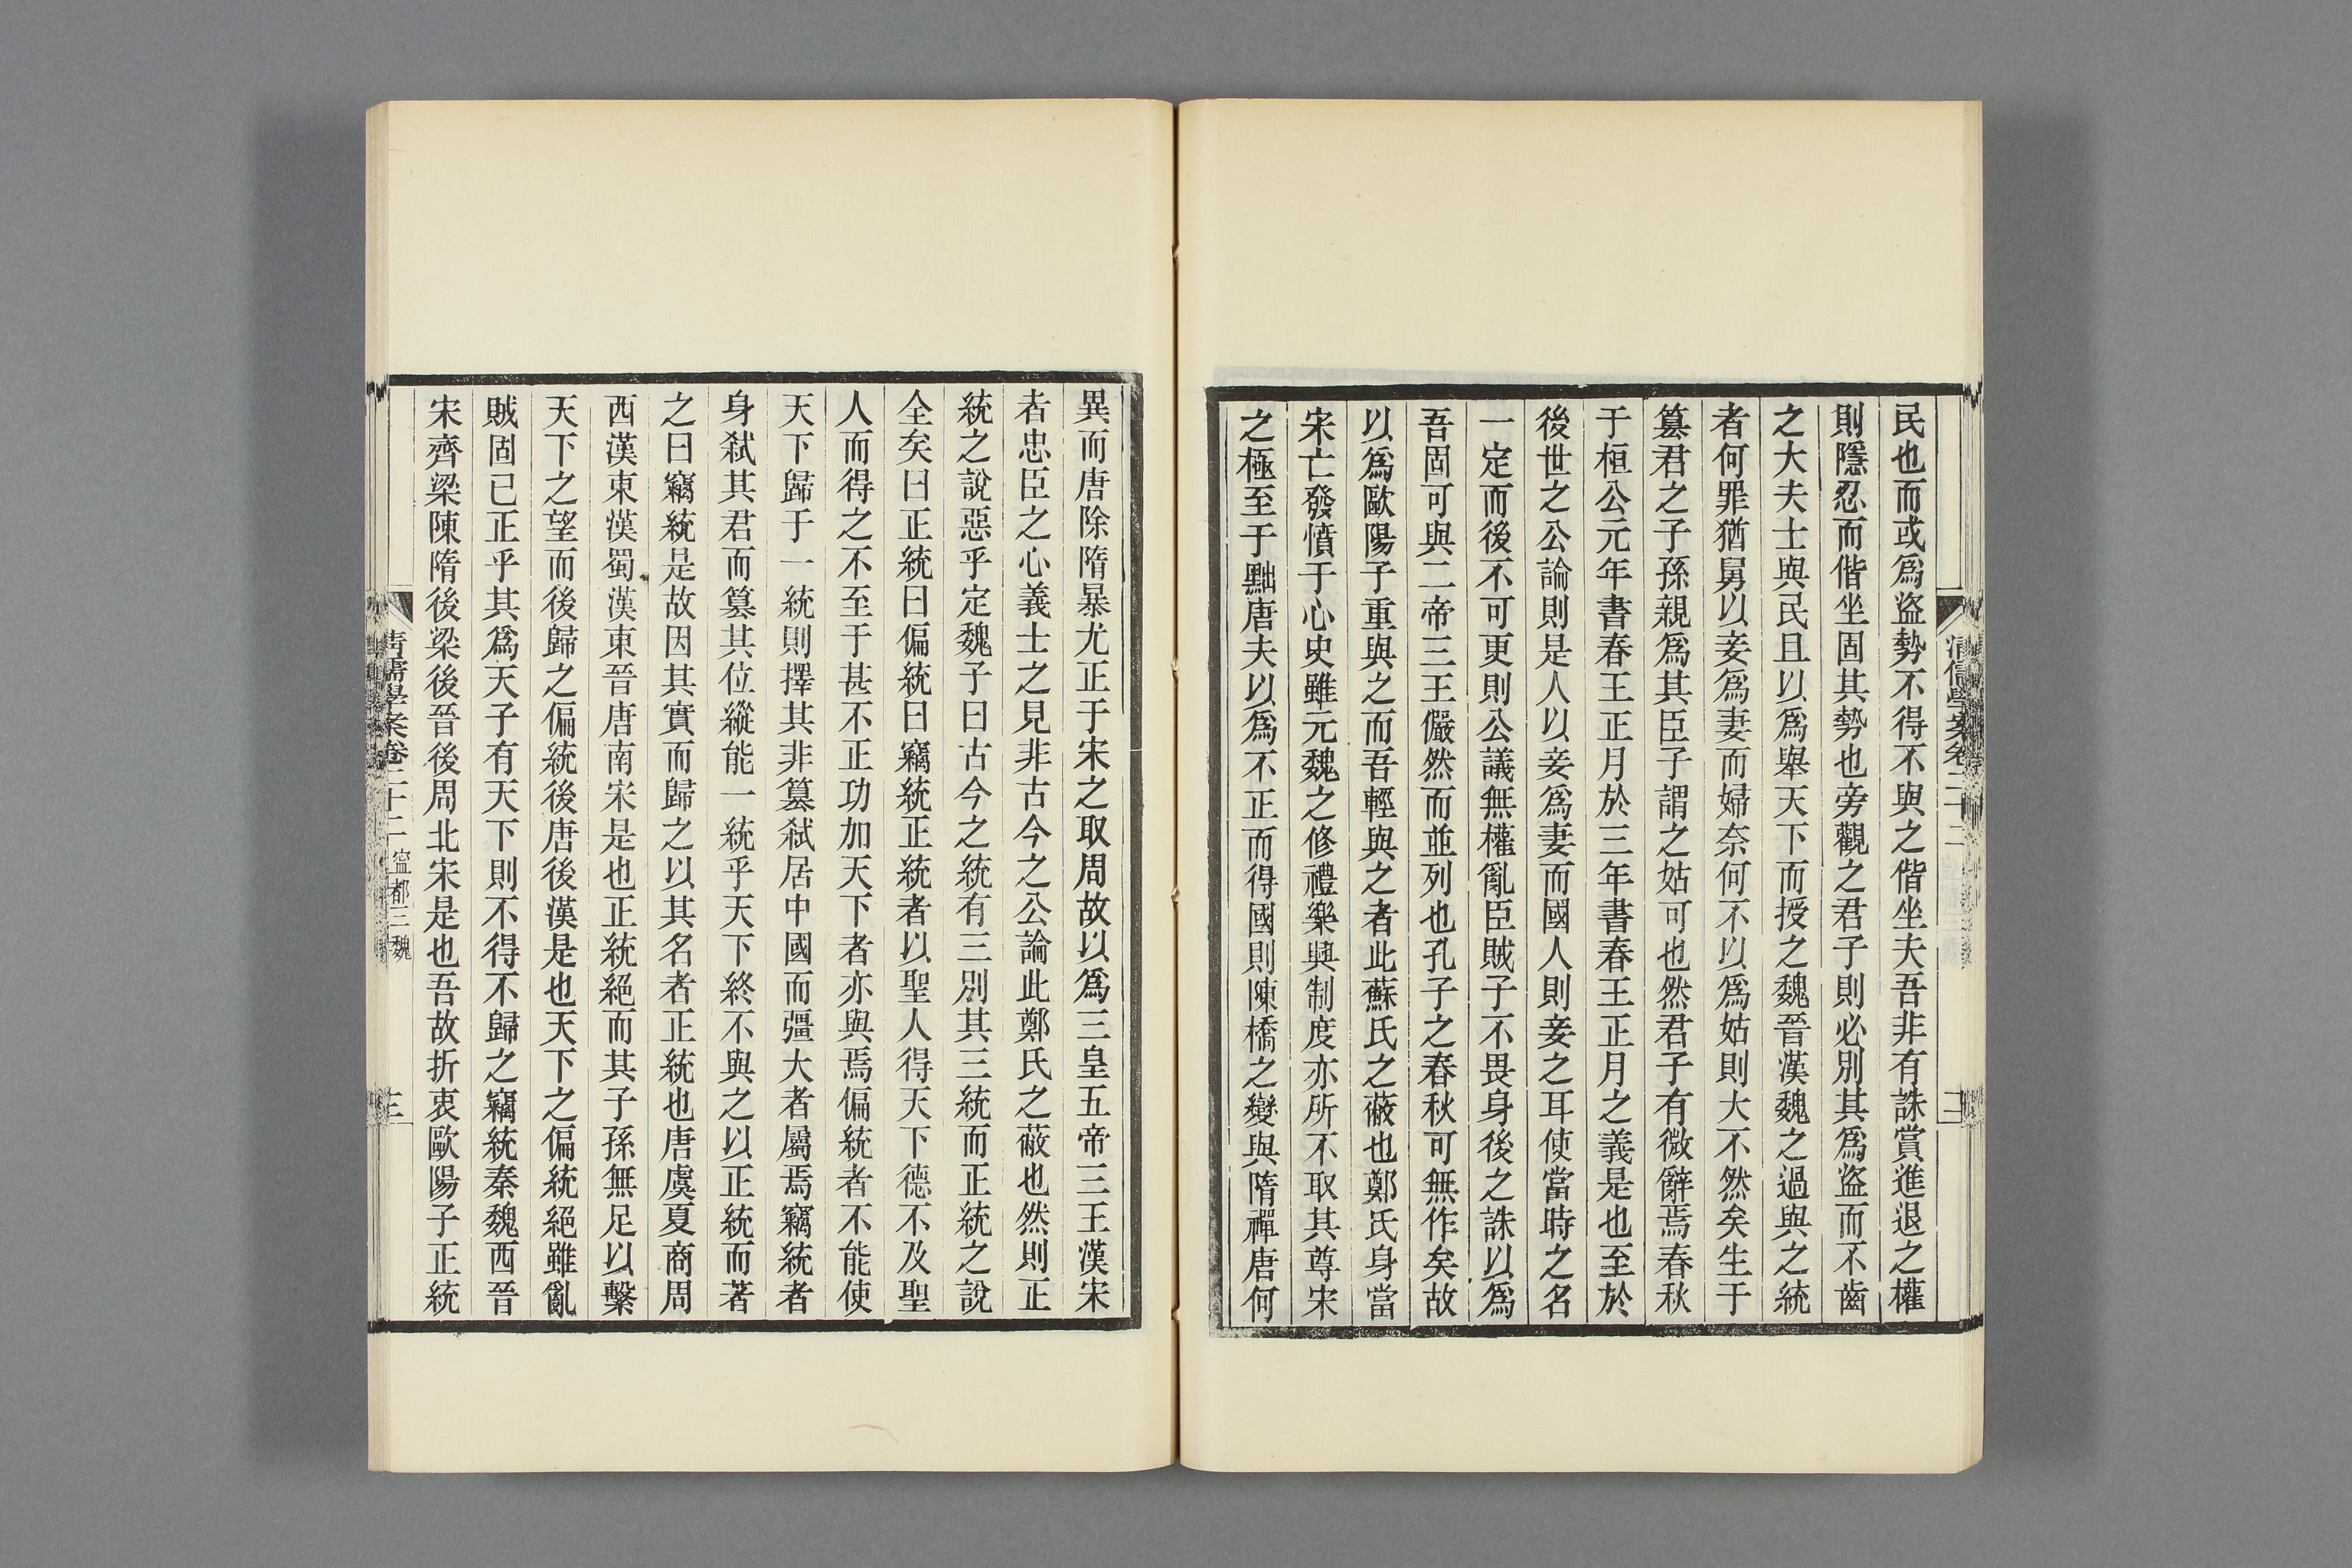 民也而或爲盜勢不得不與之偕坐夫吾非有誅賞進退之權
則隱忍而偕坐固其勢也旁觀之君子則必別其爲盜而不齒
之大夫士與民且以爲舉天下而授之魏晉漢魏之過與之統
者何罪猶舅以妾爲妻而婦奈何不以爲姑則大不然矣生于
篡君之子孫親爲其臣子謂之姑可也然君子有微辭焉春秋
于桓公元年書春王正月於三年書春王正月之義是也至於
後世之公論則是人以妾爲妻而國人則妾之耳使當時之名
一定而後不可更則公議無權亂臣賊子不畏身後之誅以爲
吾固可與二帝三王儼然而並列也孔子之春秋可無作矣故
以爲歐陽子重與之而吾輕與之者此蘇氏之蔽也鄭氏身當
宋亡發憤于心史雖元魏之修禮樂興制度亦所不取其尊宋
之極至于黜唐夫以爲不正而得國則陳橋之變與隋禪唐何
清儒學案卷二十二
二
異而唐除隋暴尤正于宋之取周故以爲三皇五帝三王漢宋
者忠臣之心義士之見非古今之公論此鄭氏之蔽也然則正
統之說惡乎定魏子曰古今之統有三別其三統而正統之說
全矣曰正統曰偏統曰竊統正統者以聖人得天下德不及聖
人而得之不至于甚不正功加天下者亦與焉偏統者不能使
天下歸于一統則擇其非篡弒居中國而彊大者屬焉竊統者
身弒其君而篡其位縱能一統乎天下終不與之以正統而著
之曰竊統是故因其實而歸之以其名者正統也唐虞夏商周
西漢東漢蜀漢東晉唐南宋是也正統絕而其子孫無足以繫
天下之望而後歸之偏統後唐後漢是也天下之偏統絕雖亂
賊固已正乎其爲天子有天下則不得不歸之竊統秦魏西晉
宋齊梁陳隋後梁後晉後周北宋是也吾故折衷歐陽子正統
清儒學案卷二十二 寍都三魏
三